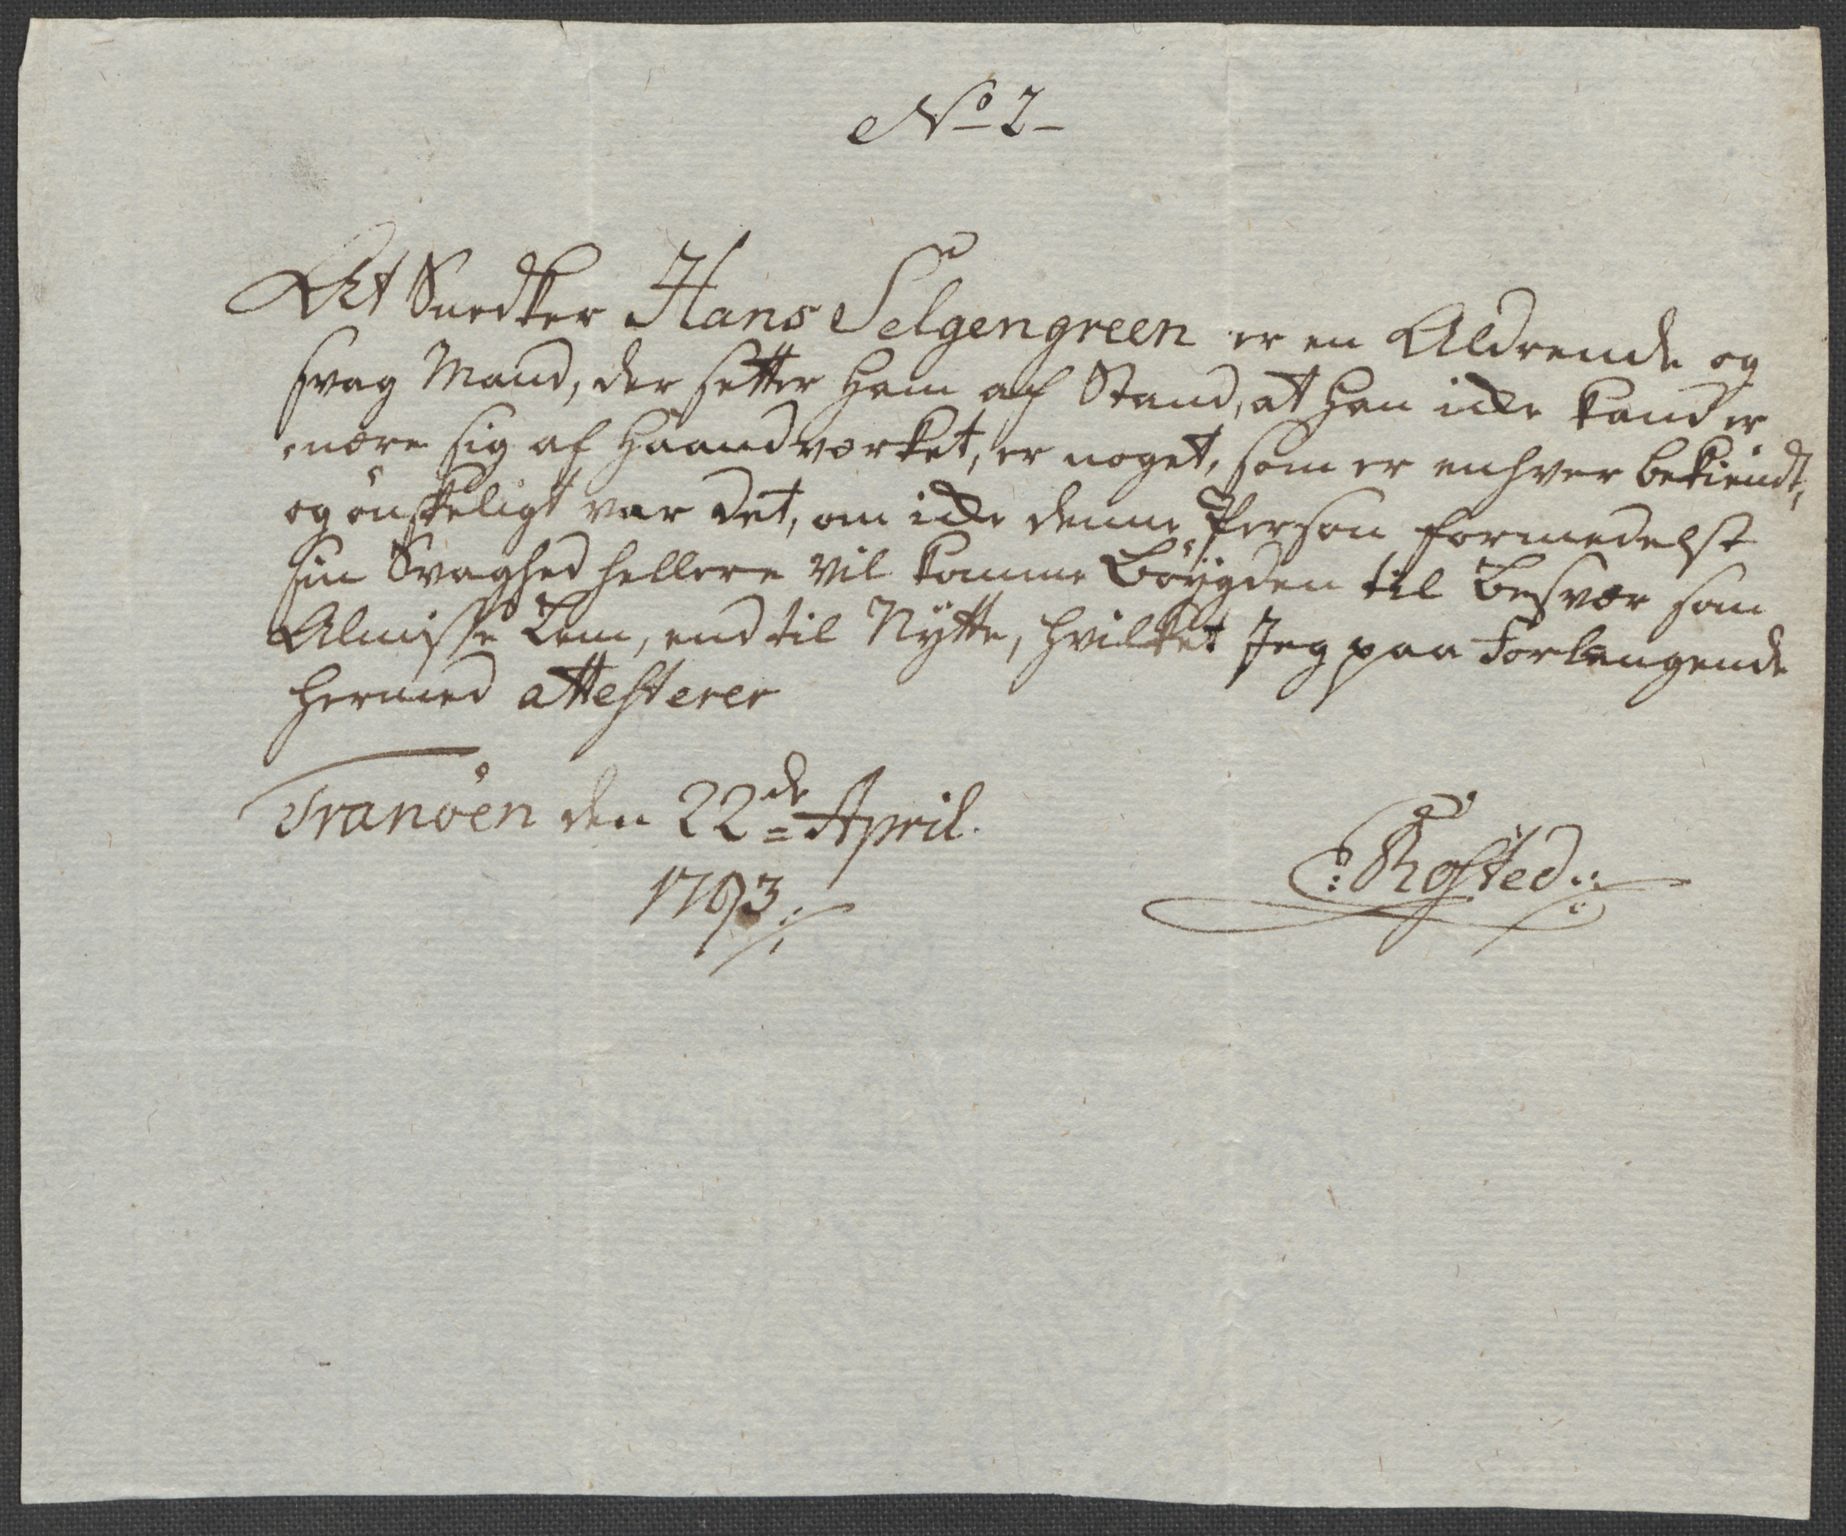 No 2
At Snedker Hans Selgengreen er en Aldrende og
svag Mand, der setter ham af Stand, at han icke kand er-
nære sig af Haandværket, er noget, som er enhver bekiendt,
og ønskeligt var det, om icke denne Person formedelst
sin Svaghed hellere vil komme Böÿgden til Besvær som
Almisse Lem, end til Nÿtte, hvilket Jeg paa Forlangende
hermed attesterer
Tranöen den 22de April.
1793
C: Rosted